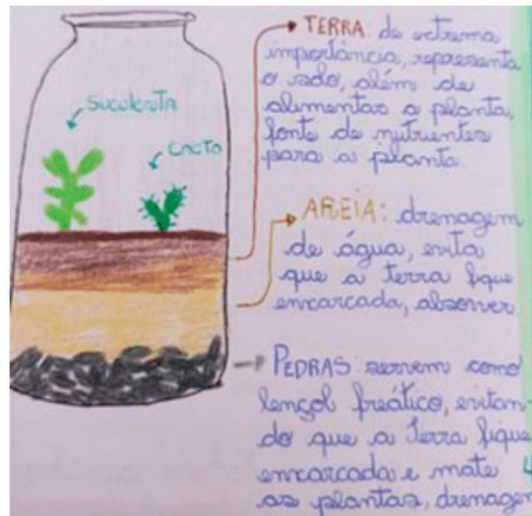 suculenta
cacto
TERRA: de extrema
importância, representa
o solo, além de
alimentar a planta,
fonte de nutrientes
para a planta.
AREIA: drenagem
de água, evita
que a terra fique
encarcada, absorver
PEDRAS: servem como
lençol freático, evitan-
do que a terra fique
encarcada e mate
as plantas, drenagem